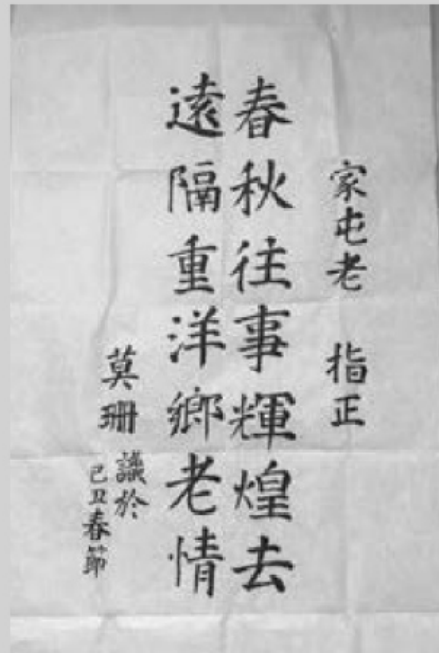 家屯老 指正
春秋往事輝煌去
遠隔重洋鄉老情
莫珊 識於
己丑春節